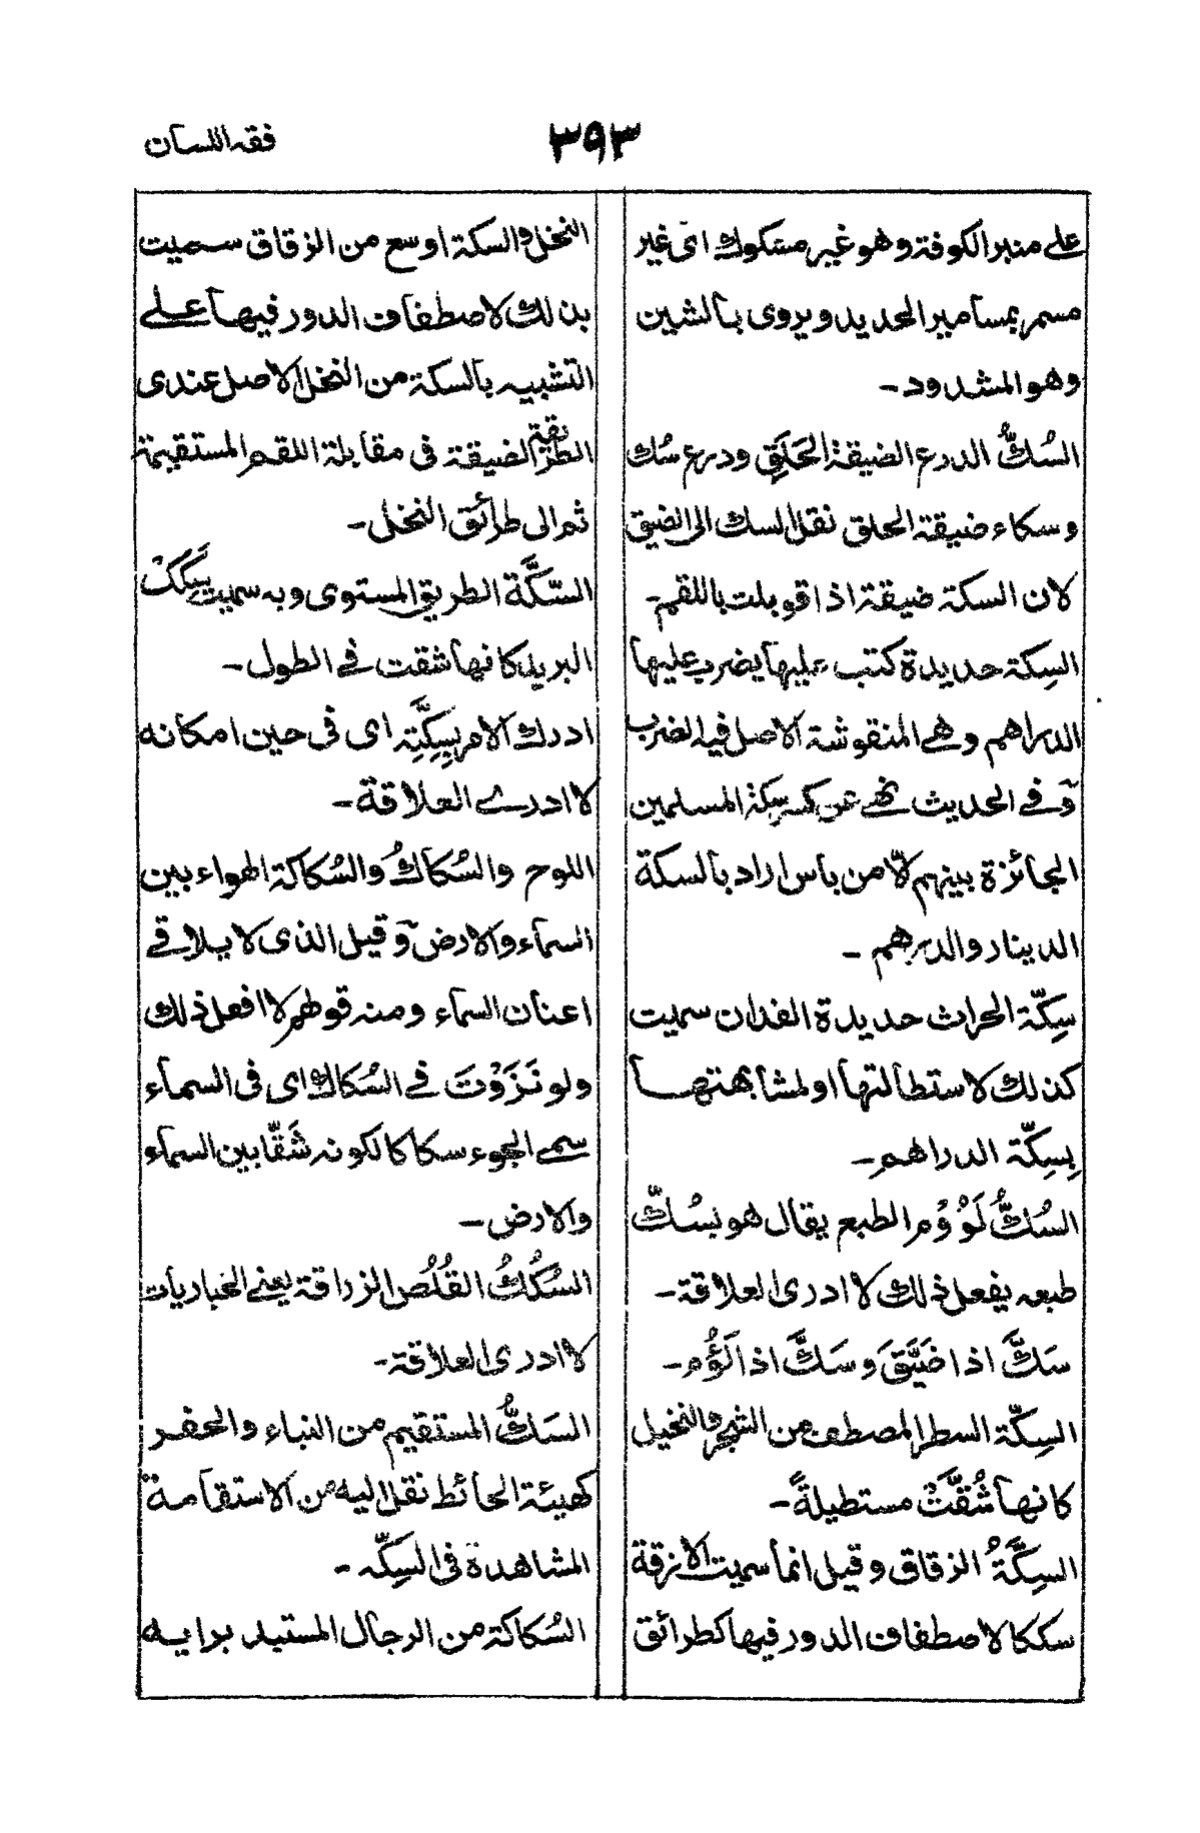 فقه اللسان
٣٩٣
على منبر الكوفة وهو غير مسكوك اى غير
مسمر بمسامير الحديد ويروى بالشين
وهو المشدود -
السُكُّ الدرع الضيقة الحَلَقِ ودرع سُك
وسكاء ضيقة الحلق نقل السك الى الضيق
لان السكة ضيقة اذا قوبلت باللقم -
السِكة حديدة كتب عليها يضرب عليها
الدراهم وهى المنقوشة الاصل فيه الضرب
وَفى الحديث نهى عن كسر سِكة المسلمين
الجائزة بينهم الّا من باس اراد بالسكة
الدينار والدرهم -
سِكّة الحراث حديدة الفدان سميت
كذلك لاستطالتها او لمشابهتها
بِسِكّة الدراهم -
السُكُّ لَوُوُم الطبع يقال هو بسُكِّ
طبعه يفعل ذلك لا ادرى العلاقة -
سَكَّ اذا ضَيَّقَ وسَكَّ اذا لَؤُم -
السِكّة السطر المصطف من الشجر والنخيل
كانها شُقَّتْ مستطيلةً -
السِكَّةُ الزقاق وقيل انما سميت الازقة
سككا لاصطفاف الدور فيها كطرائق
النخل والسكة اوسع من الزقاق سميت
بذلك لاصطفاف الدور فيها على
التشبيه بالسكة من النخل الاصل عندى
الطريقة الضيقة فى مقابلة اللقم المستقيمة
ثم الى طرائق النخل -
السّكَّة الطريق المستوى وبه سميت سِكَك
البريد كانها شقت فى الطول -
ادرك الامر بِسِكَّتِه اى فى حين امكانه
لا ادرى العلاقة -
اللوح والسُكاكُ والسُكاكة الهواء بين
السماء والارض وَقيل الذى لا يلاقى
اعنان السماء ومنه قولهم لا افعل ذلك
ولو نَزَوْتَ فى السُكاك اى فى السماء
سمى الجوء سكاكا لكونه شَقّا بين السماء
والارض -
السُكُكُ القُلُصُ الزراقة يعنى الخباريات
لا ادرى العلاقة -
السَكُّ المستقيم من البناء والحفر
كهيئة الحائط نقل اليه من الاستقامة
المشاهدة فى السِكّه -
السُكاكة من الرجال المستبد برايه